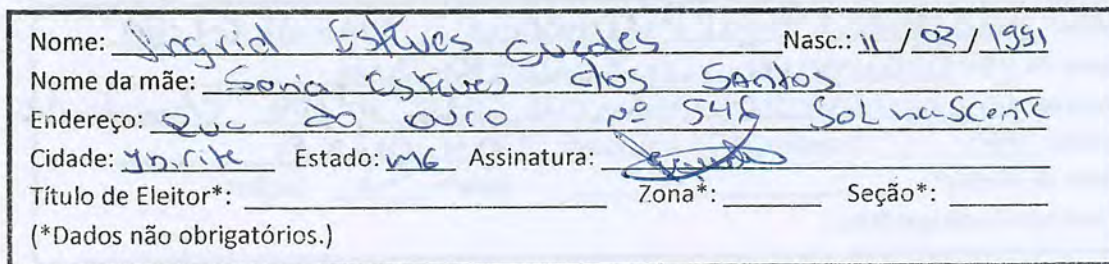 Nome: Ingrid Esteves Guedes Nasc.: 11 / 02 / 1991
Nome da mãe: Sonia Esteves dos Santos
Endereço: Rua do ouro nº 546 Sol nascente
Cidade: Ibirite Estado: MG Assinatura:
Título de Eleitor*: Zona*: Seção*:
(*Dados não obrigatórios.)